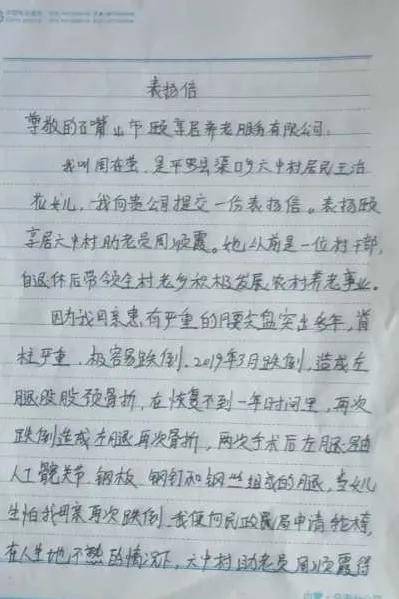 表扬信
尊敬的石嘴山市颐享居养老服务有限公司:
我叫周在莹,是平罗县渠口乡六中村居民王治
花女儿,我向贵公司提交一份表扬信。表扬颐
享居六中村助老员周顺霞。她从前是一位村干部,
自退休后带领全村老乡积极发展农村养老事业。
因为我母亲患有严重的腰尖盘突出多年,脊
柱严重,极容易跌倒,2019年3月跌倒,造成左
腿股股颈骨折,在恢复不到一年时间里,再次
跌倒造成左腿再次骨折,两次手术后左腿是由
人工髋关节、钢板、钢钉和钢丝组成的腿,当女儿
生怕我母亲再次跌倒,我便向民政局申请轮椅,
在人生地不熟的情况下,六中村助老员周顺霞得